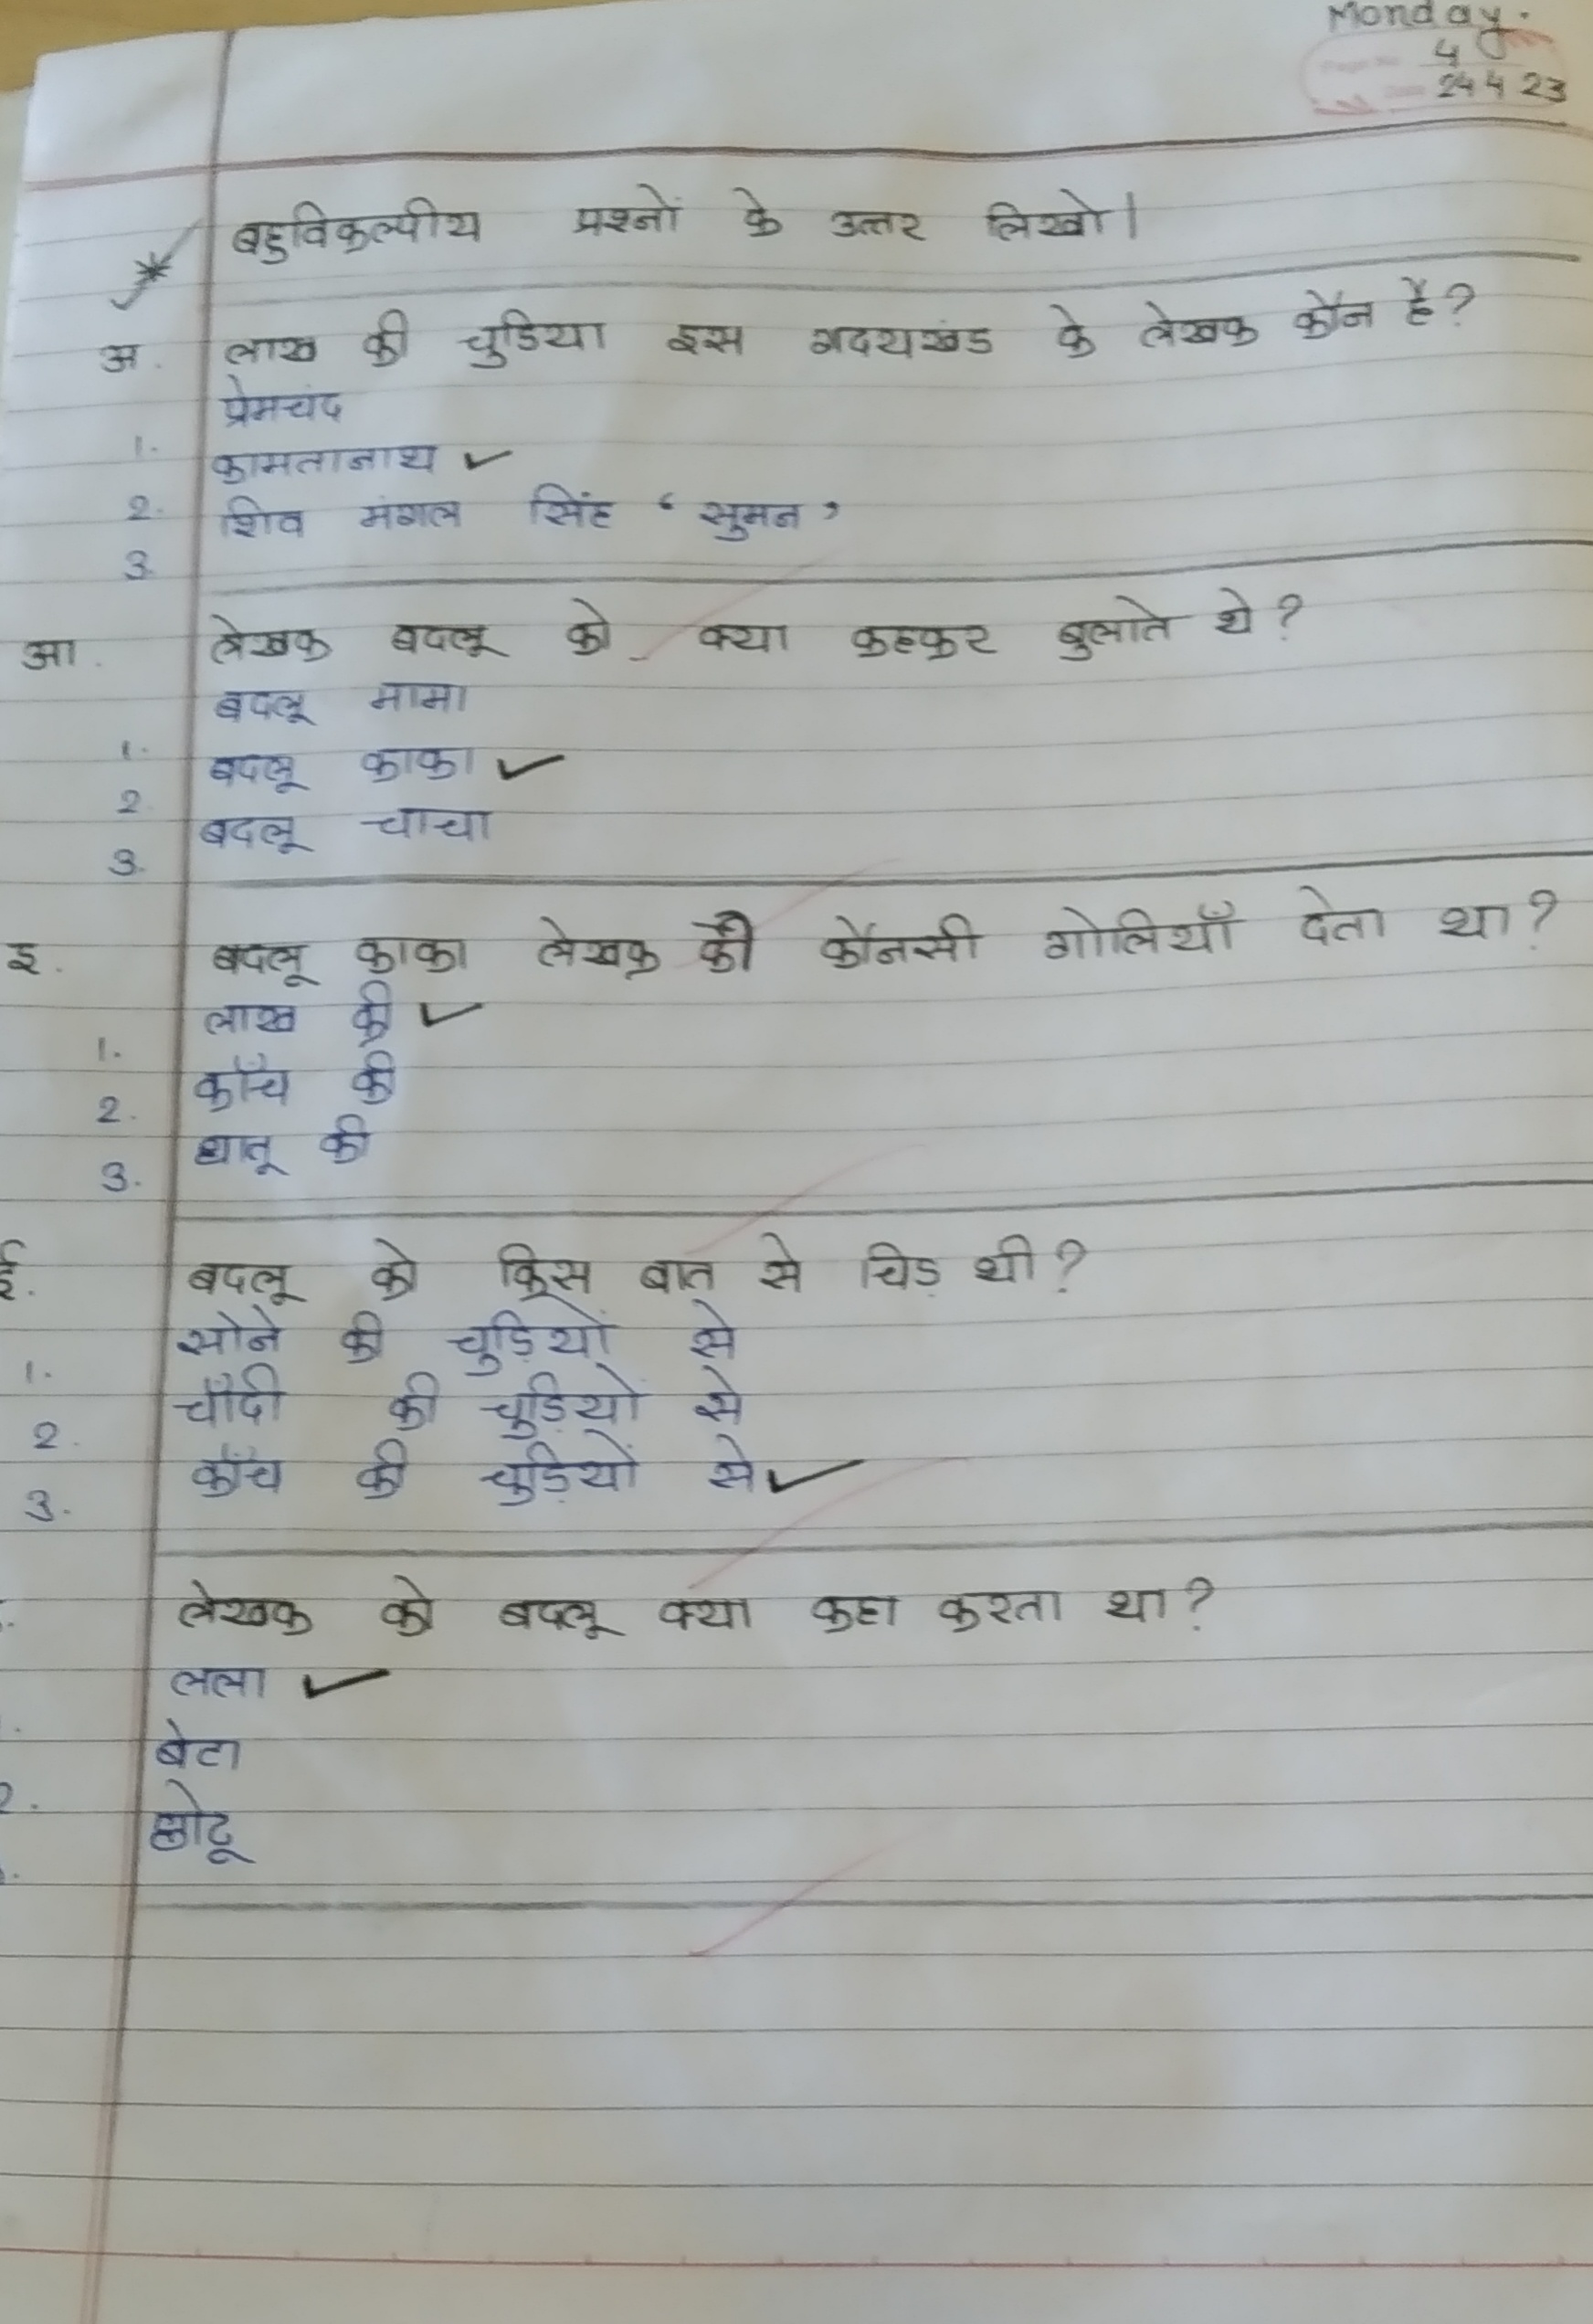 Monday.
4
24 4 23
* बहुविकल्पीय प्रश्नों के उत्तर लिखो।
अ. लाख की चुडिया इस गदयखंड के लेखक कौन है?
1. प्रेमचंद
2. कामतानाथ ✓
3. शिव मंगल सिंह ‘सुमन’
आ. लेखक बदलू को क्या कहकर बुलाते थे?
1. बदलू मामा
2. बदलू काका ✓
3. बदलू चाचा
इ. बदलू काका लेखक को कौनसी गोलियाँ देता था?
1. लाख की ✓
2. काँच की
3. धातू की
ई. बदलू को किस बात से चिड़ थी?
1. सोने की चुड़ियों से
2. चाँदी की चुड़ियों से
3. काँच की चुड़ियों से ✓
लेखक को बदलू क्या कहा करता था?
लला ✓
2. बेटा
छोटू